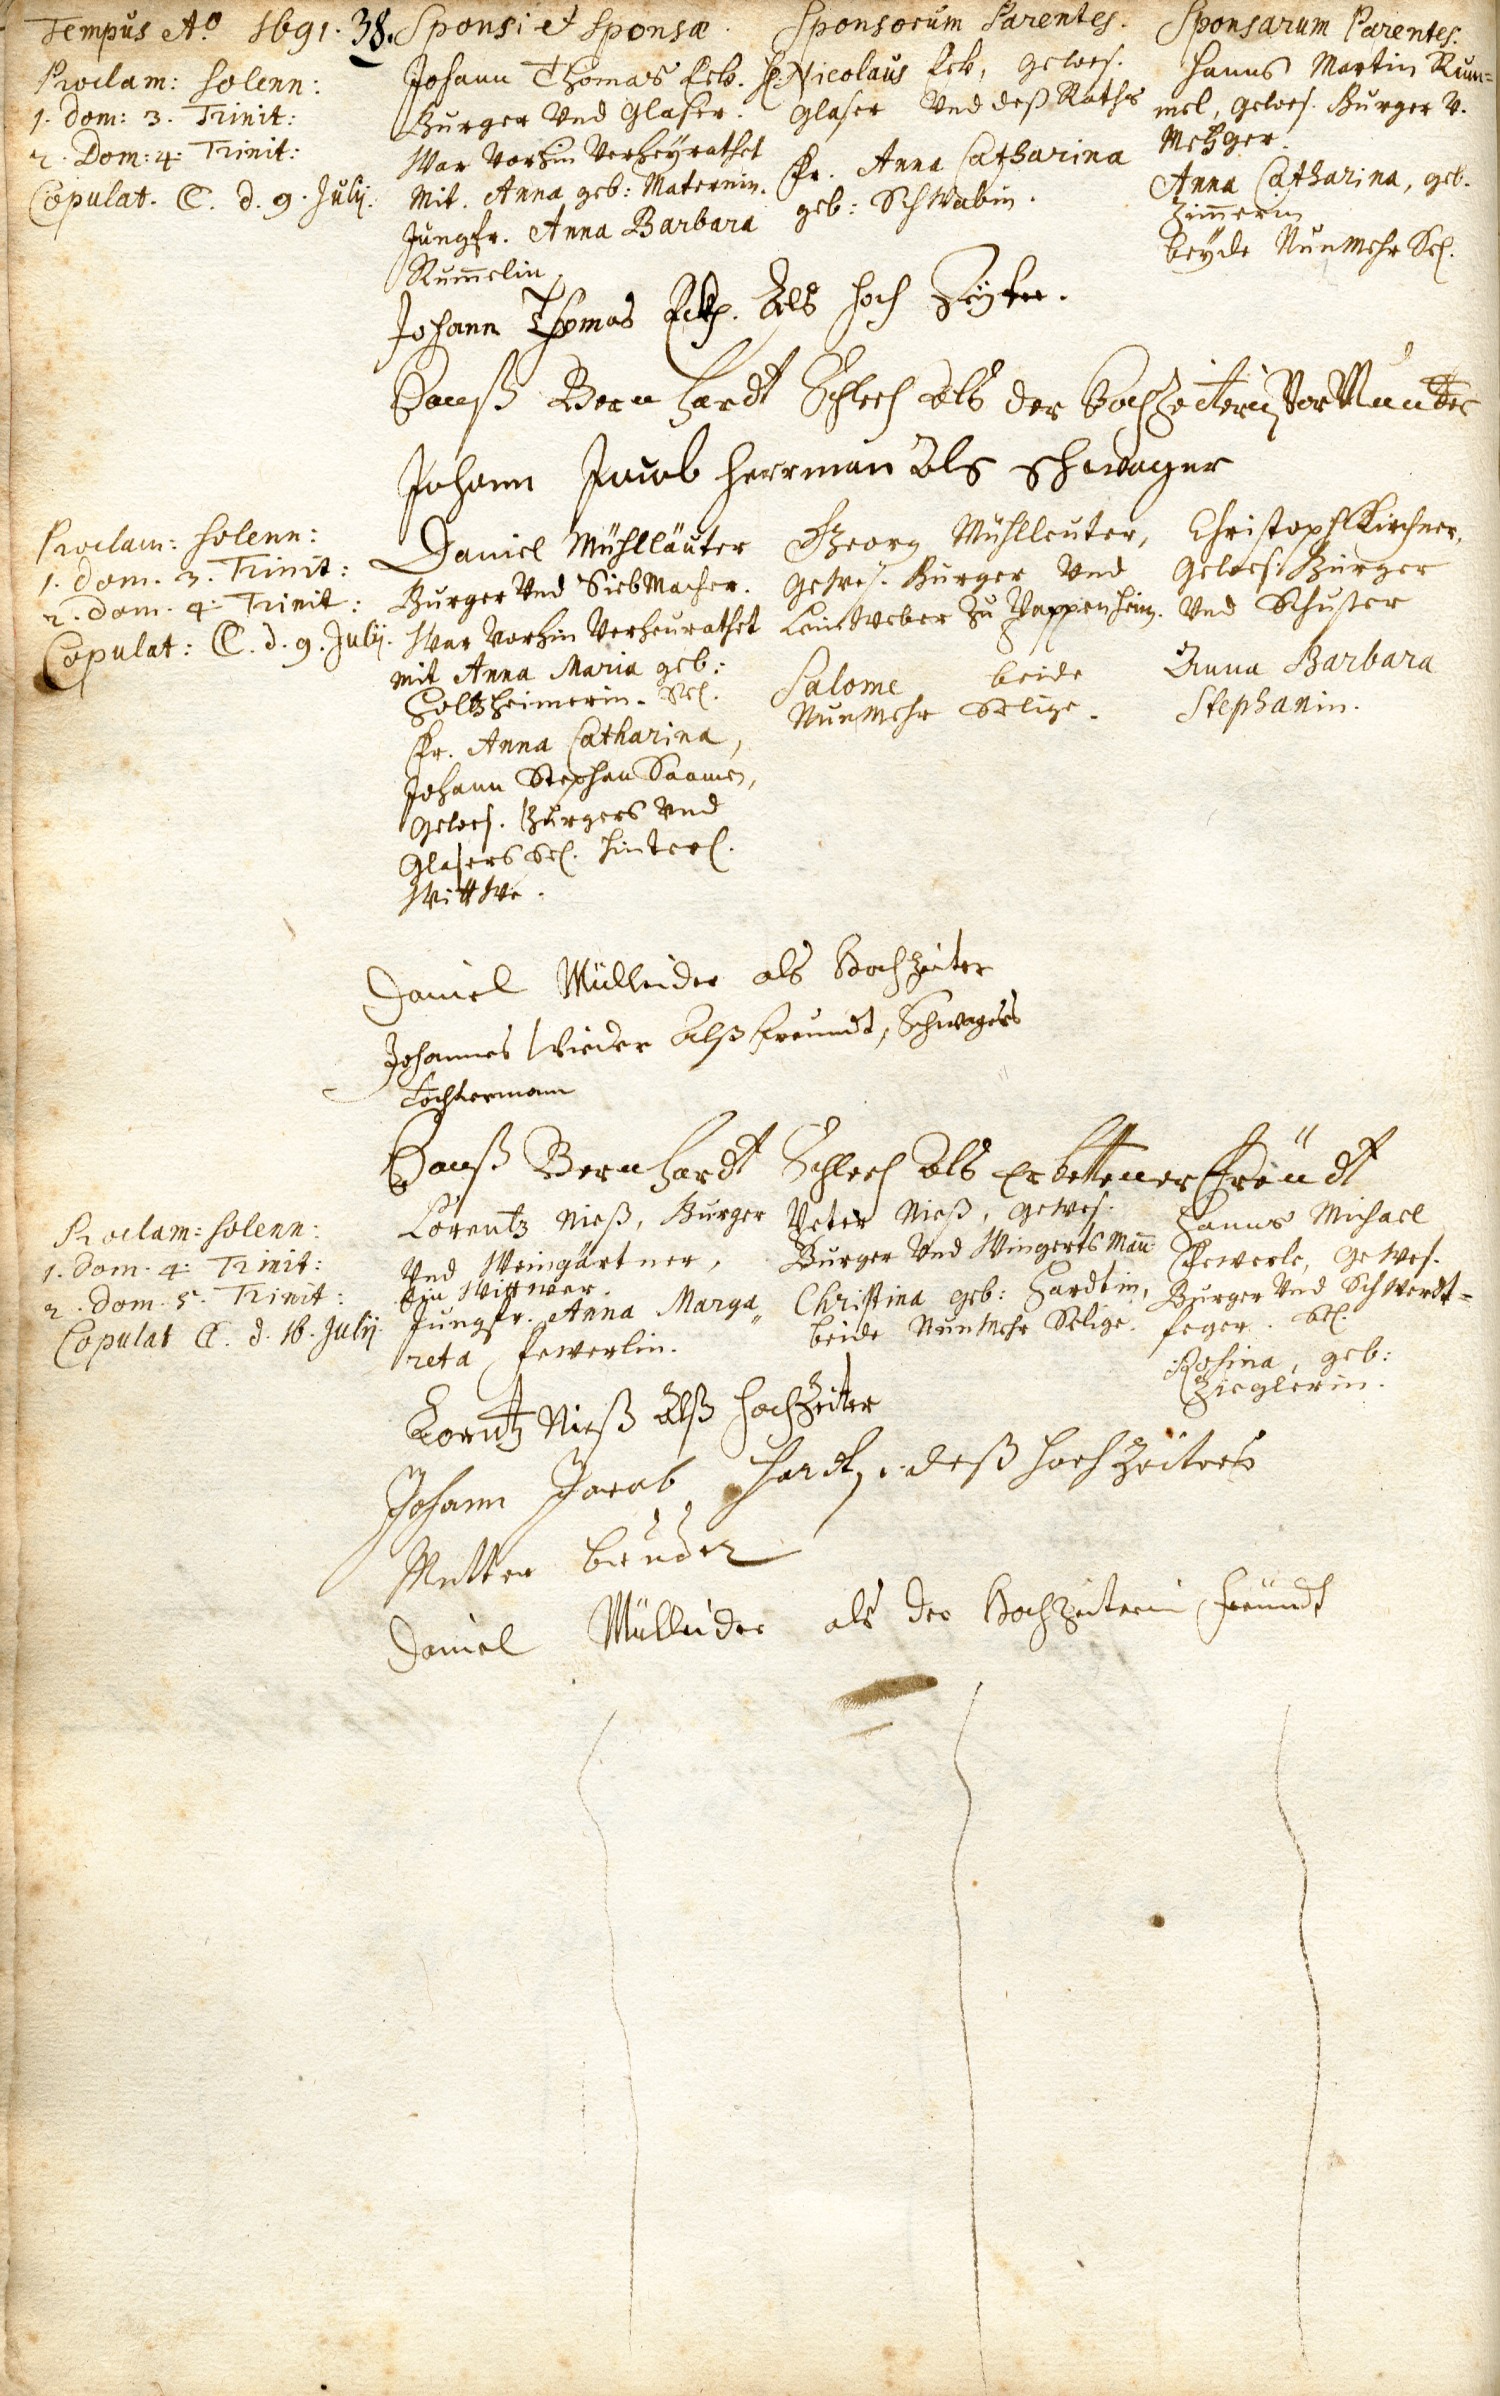 Tempus Aõ 1691. 38.
Sponsi et Sponsæ.
Sponsorum Parentes.
Sponsarum Parentes.
Proclam: solenn:
1. Dom: 3. Trinit:
2. Dom: 4. Trinit:
Copulat. C. d. 9. Julij.
Johann Thomas Eck.
Burger Vnd Glaser.
War Vorhin Verheyrathet
mit. Anna geb: Maternin.
Jungfr. Anna Barbara
Rum̄elin
H. Nicolaus Eck, gewes.
Glaser Vnd deß Raths
Fr. Anna Catharina
geb: Schwabin.
Hanns Martin Rum-
mel, gewes. Burger V.
Metzger.
Anna Catharina, geb.
Zim̄erin
beÿde Nunmehr Sel.
Johann Thomas Eckh. Als hoch Zeyter.
Hanß Bernhardt Schlech als der Hochzeiterin Vor Mundter
Johann Jacob Herrman Als schwager
Proclam: solenn:
1. Dom. 3. Trinit:
2. Dom. 4. Trinit:
Copulat: C. d. 9. Julij.
Daniel Mühlläuter
Burger Vnd SiebMacher.
War Vorhin Verheurathet
mit Anna Maria geb:
Holtzheimerin. Sel.
Fr. Anna Catharina,
Johann Stephan Saamen,
gewes. Burgers Vnd
Glasers Sel. hinterl.
Wittwe.
Georg Mühlleuter,
gewes. Burger Vnd
Leinweber zu Pappenheim.
Salome beide
Nunmehr Selige.
Christoph Kirchner,
gewes. Burger
Vnd Schuster
Anna Barbara
Stephanin.
Daniel Mülleider als Hochzeiter
Johannes Wieder Alß freundt, Schwagers
Tochtermann
Hanß Bernhardt Schlech Als Erbettener freündt
Proclam: solenn:
1. Dom. 4. Trinit:
2. Dom. 5. Trinit:
Copulat C. d. 16. Julij.
Lorentz Nieß, Burger
Vnd Weingärtner,
Ein Wittwer.
Jungfr. Anna Marga„
reta Fewerlin.
Peter Nieß, gewes.
Burger Vnd Wingerts Mañ
Christina geb: Hardtin,
beide Nunmehr Selige.
Hanns Michael
Fewerle, gewes.
Burger Vnd Schwerdt-
feger. Sel.
Rosina, geb:
Zieglerin.
Lorentz Nieß Alß hochZeiter
Johann Jacob Hardt, deß hochzeiters
Mutter bruder
Daniel Mülleider als der Hochzeiterin freundt